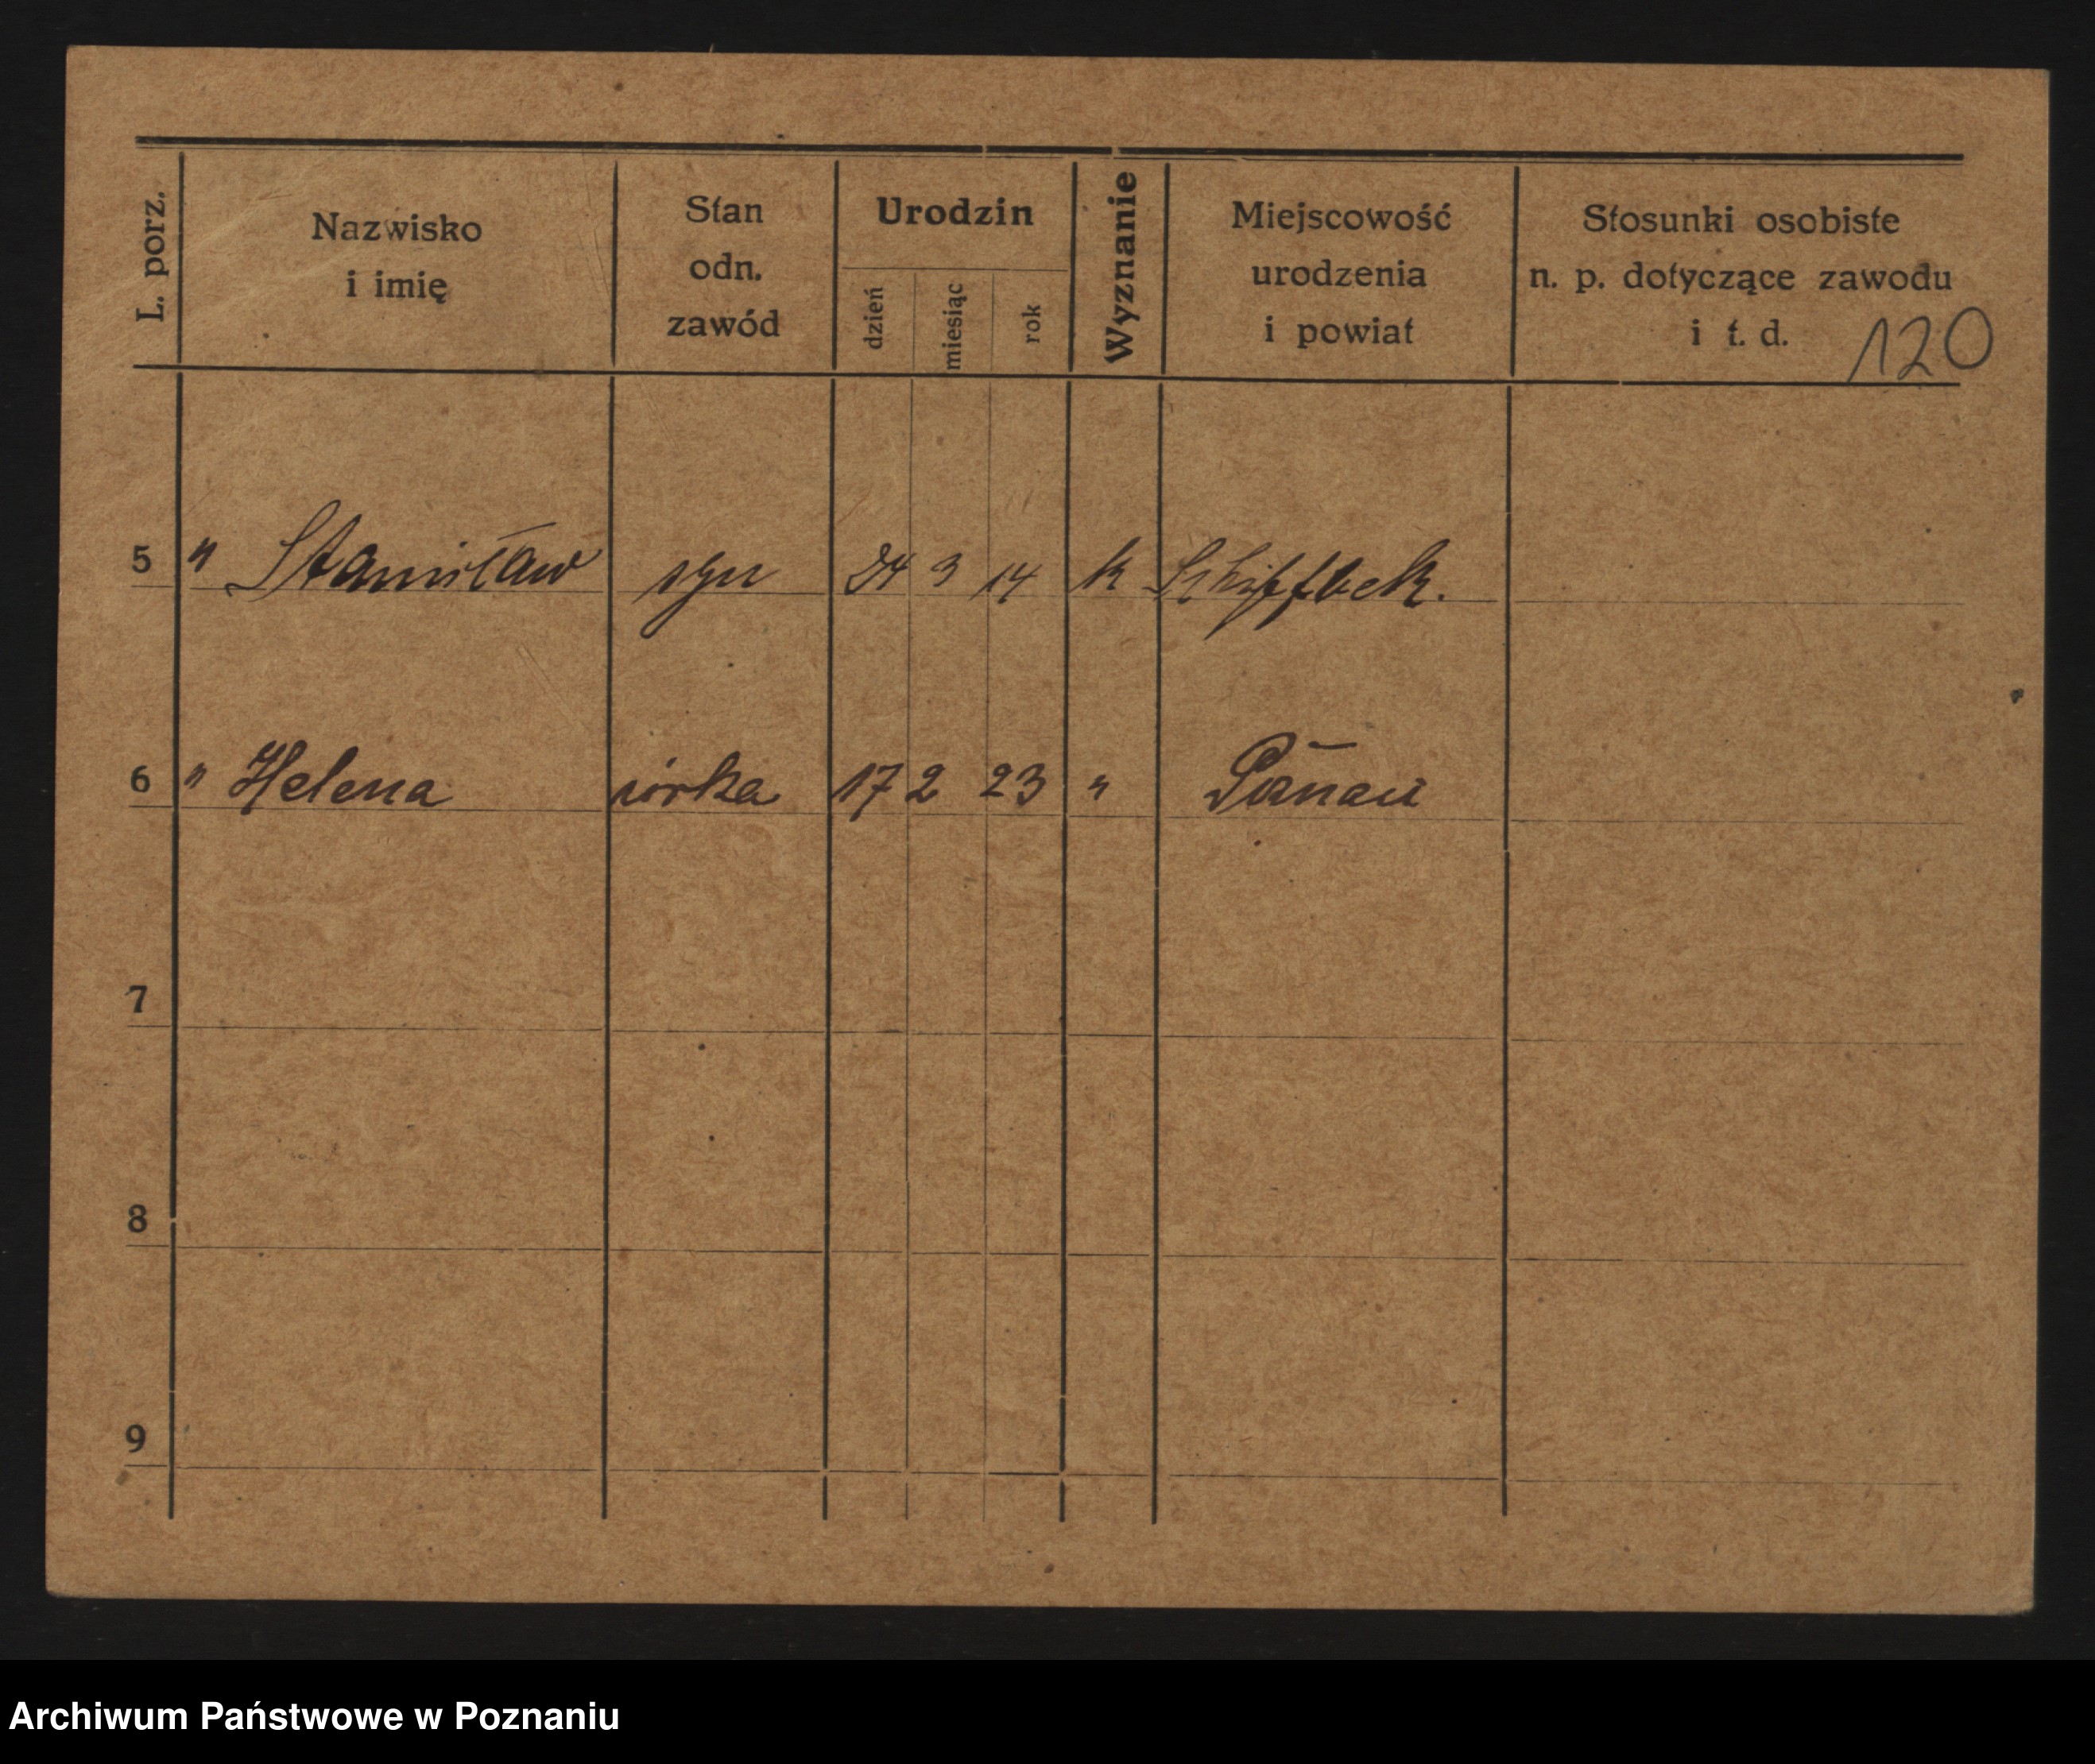 L. porz. Nazwisko i imię Stan odn. zawód Urodzin dzień miesiąc rok Wyznanie Miejscowość urodzenia i powiat Stosunki osobiste n. p. dotyczące zawodu i t. d.
120
5 " Stanisław syn 24 3 14 k Schiffbek.
6 " Helena córka 17 2 23 "
7
8
9
Archiwum Państwowe w Poznaniu